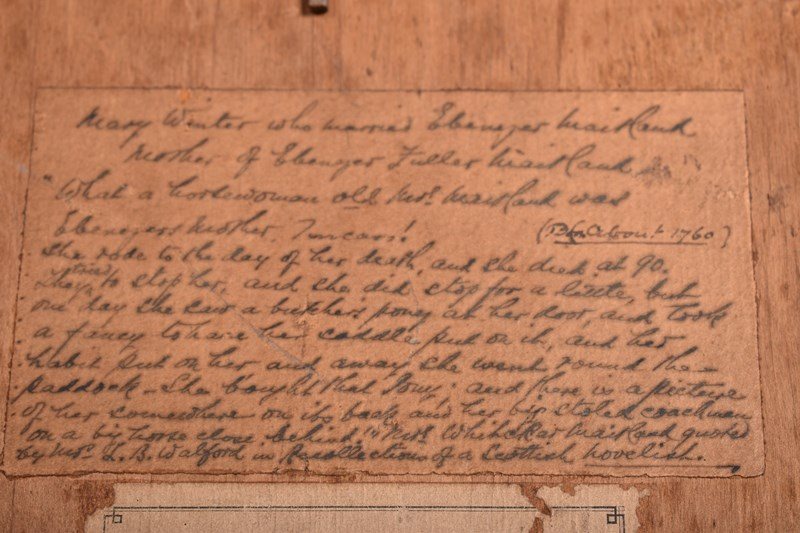 Mary Winter who married Ebenezer Maitland
Mother of Ebenezer Fuller Maitland
"What a horsewoman old Mrs. Maitland was
Ebenezers Mother. I mean! (about 1760)
She rode to the day of her death, and she died at 90.
They tried to stop her, and she did stop for a little, but
one day she saw a butchers pony at her door, and took
a fancy to have her saddle put on it, and her
habit put on her and away she went round the
paddock. She bought that pony: and there is a picture
of her somewhere on its back and her big stolid coachman
on a big horse close behind" Mrs. Maitland quoted
by Mrs. L. B. Walford in Recollections of a Scottish novelist.